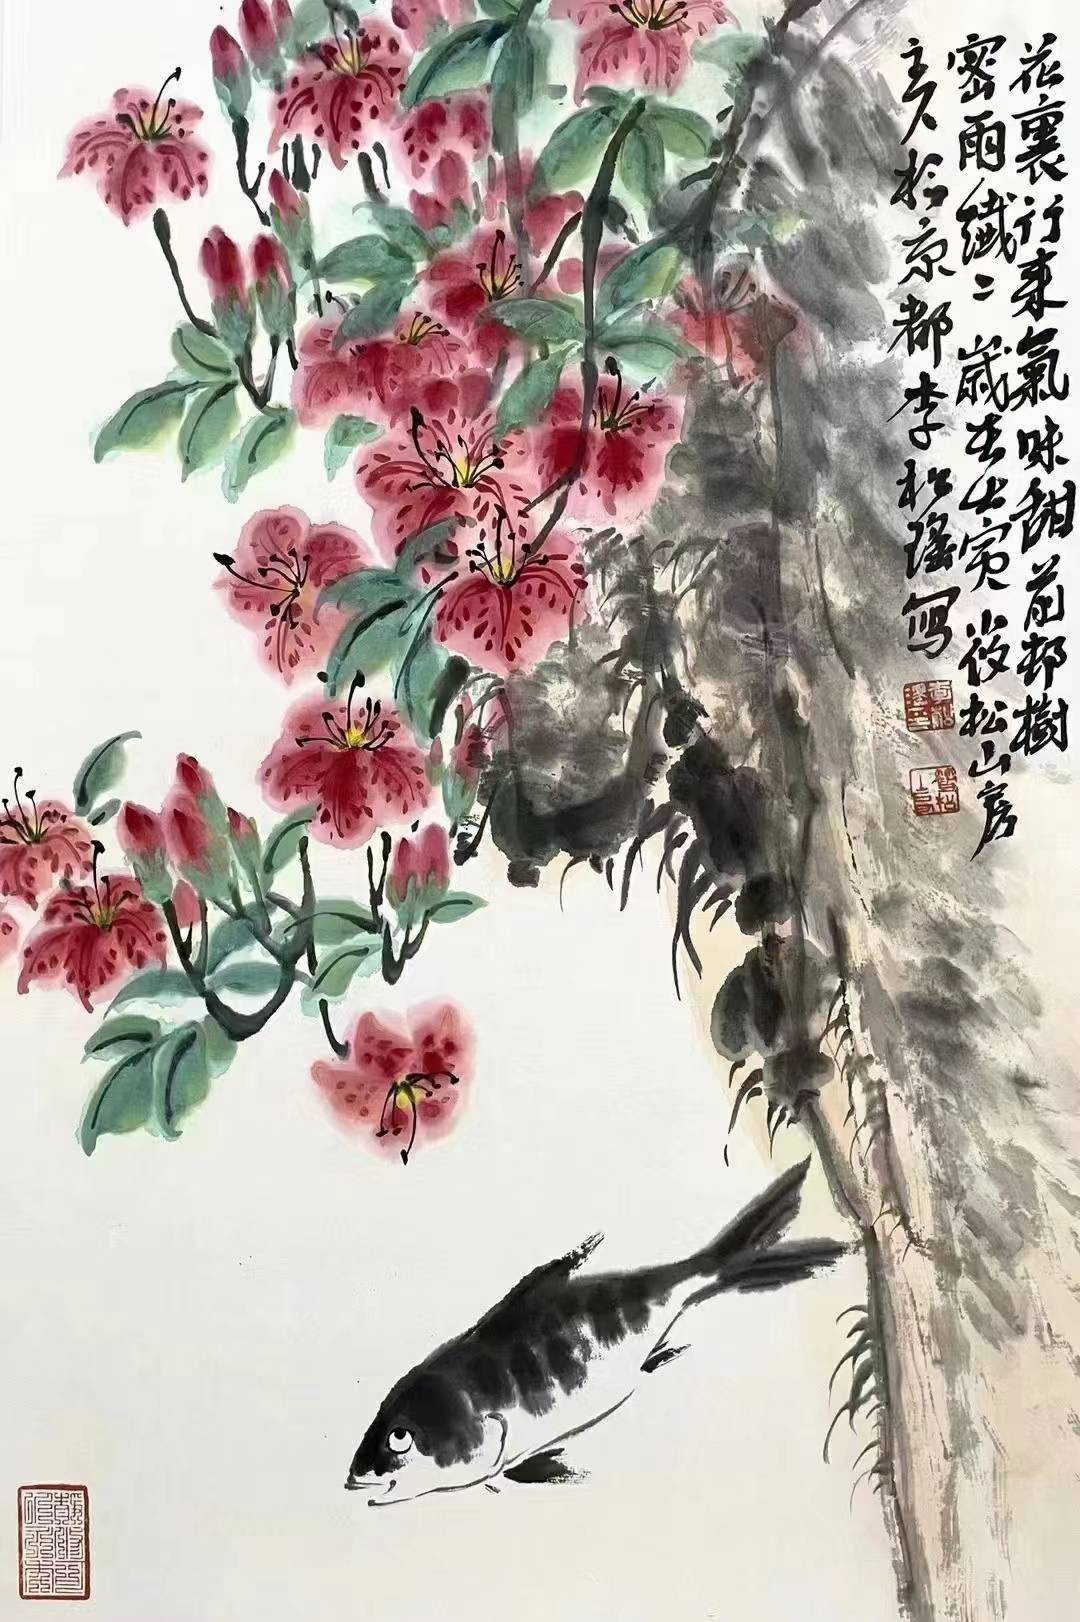 花裏行来氣味甜前邨樹
密雨纖〻歲在壬寅筱松山房
主人於京都李松瑶寫